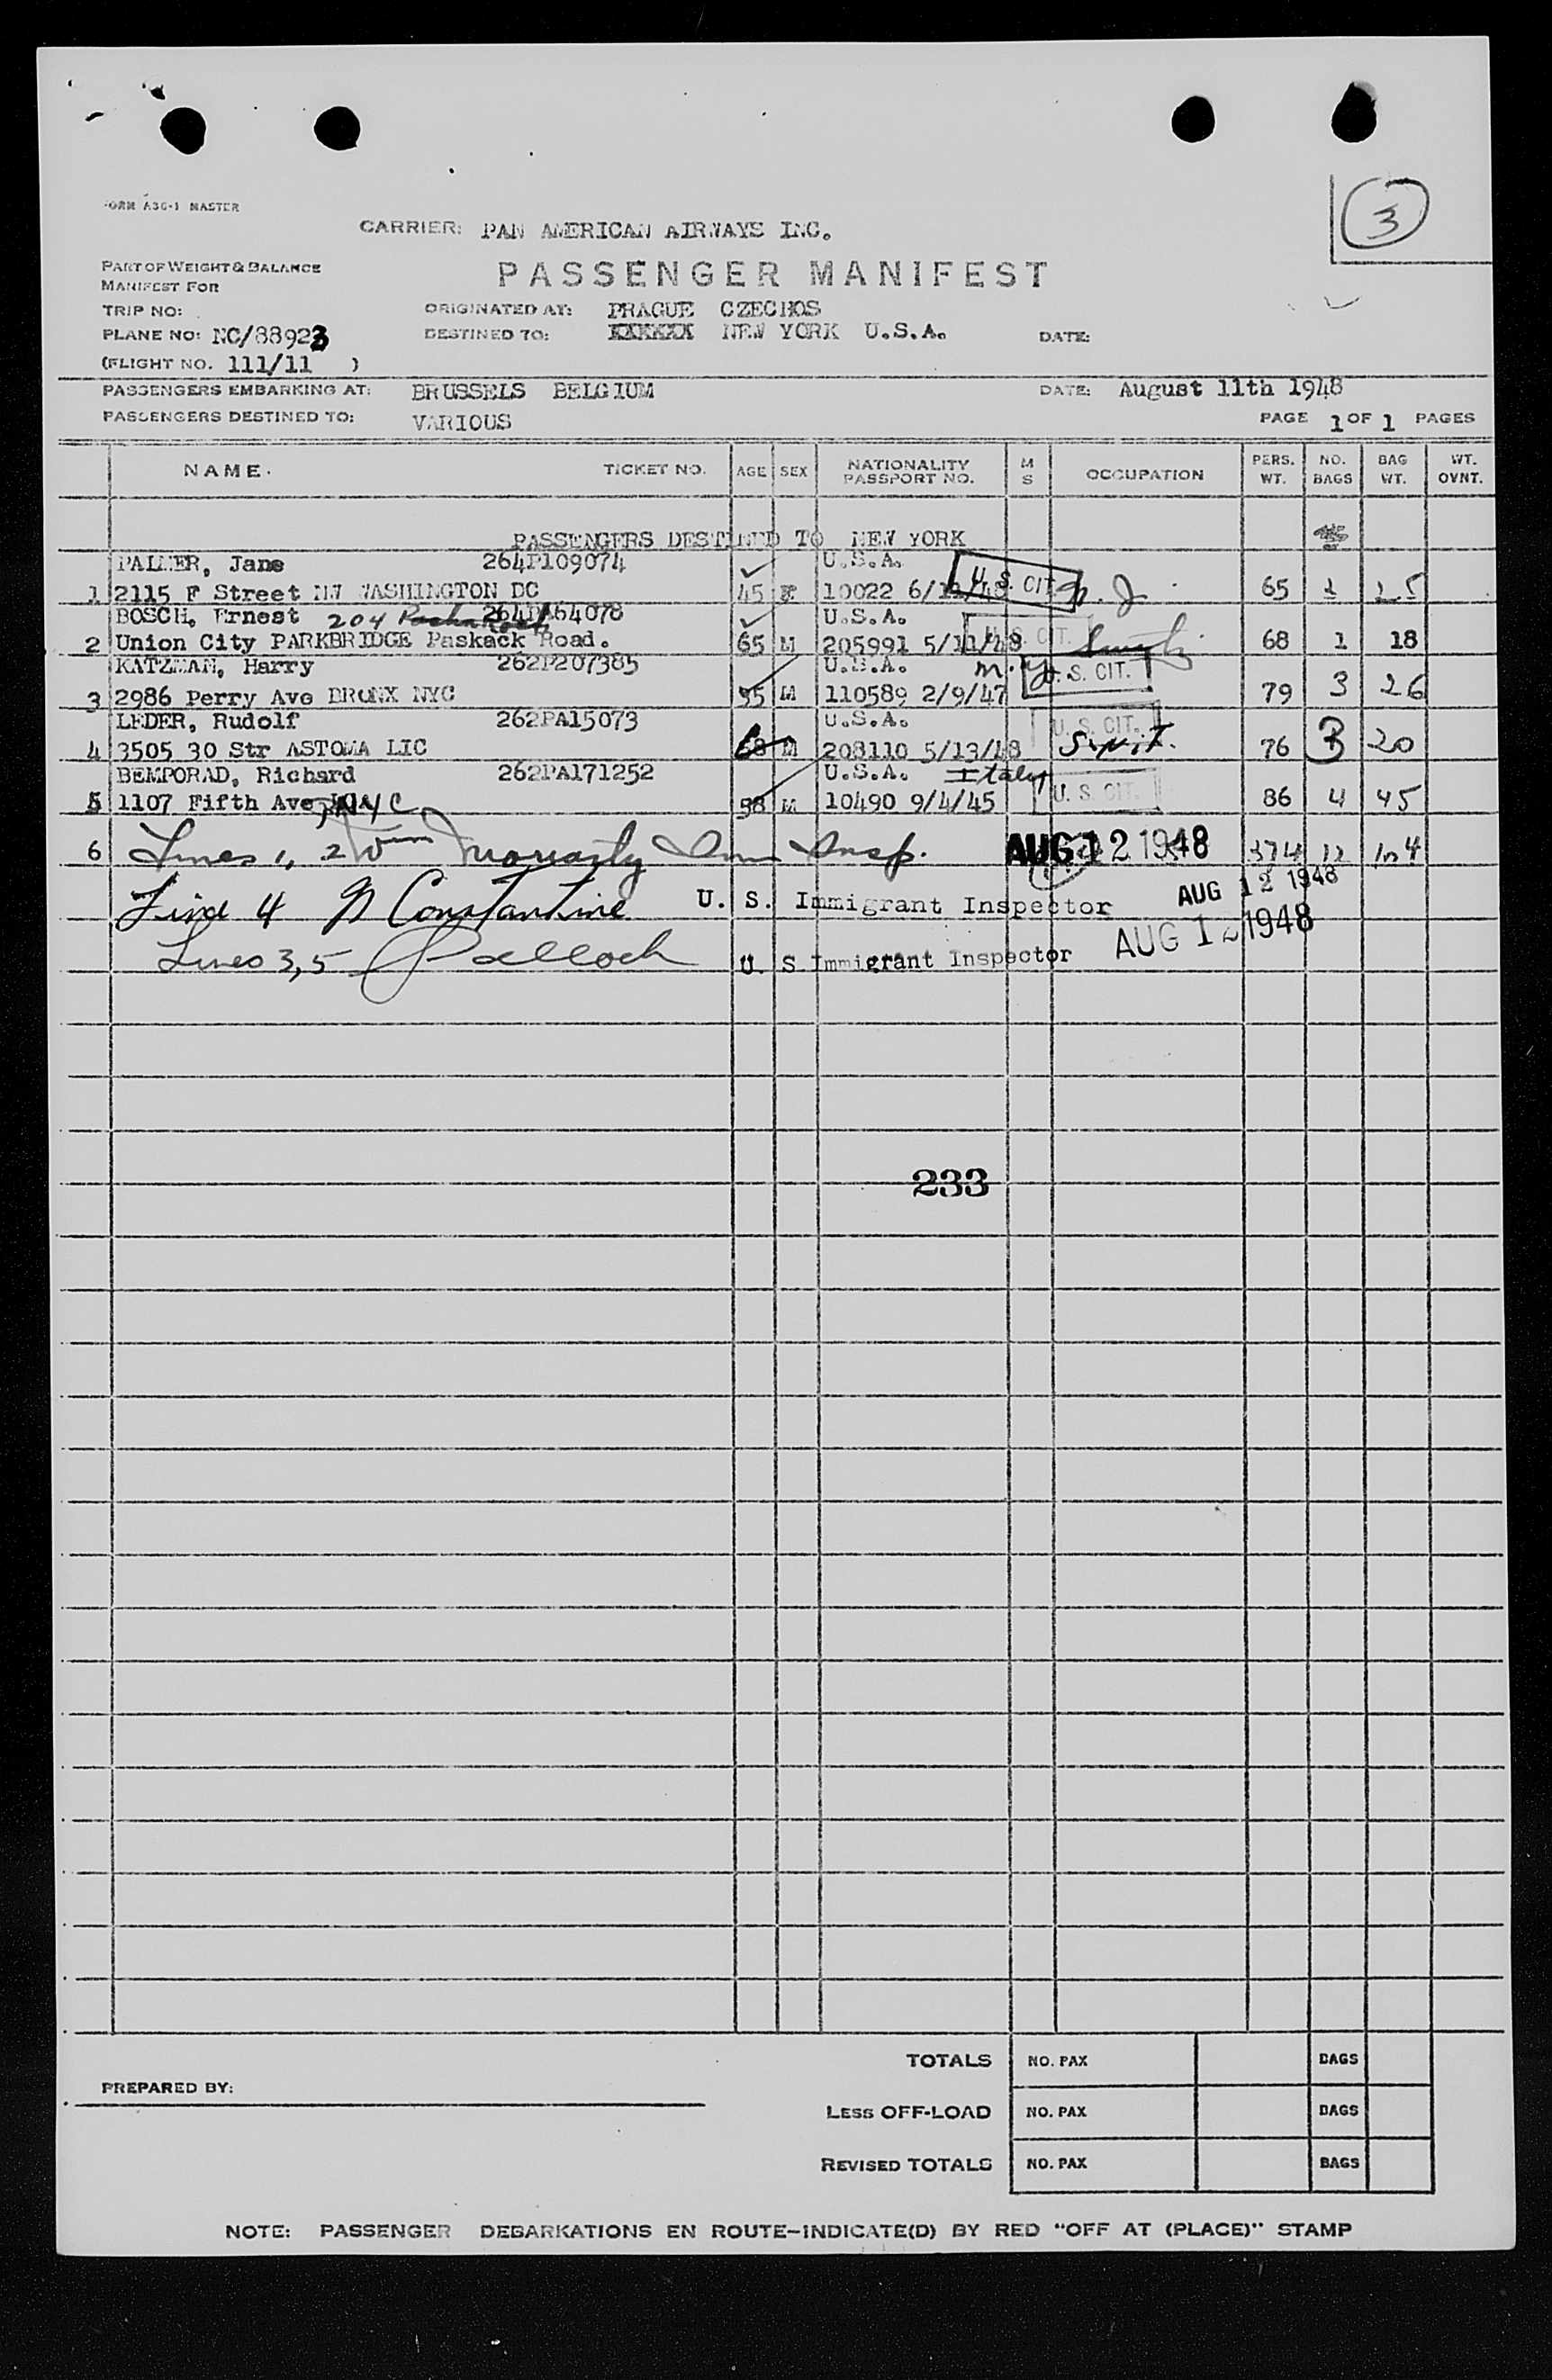 FORM A36-1 MASTER
3
CARRIER: PAN AMERICAN AIRWAYS INC.
PART OF WEIGHT & BALANCE
MANIFEST FOR
PASSENGER MANIFEST
TRIP NO:
ORIGINATED AT: PRAGUE CZECHOS
PLANE NO: NC/88923
DESTINED TO: XXXXXX NEW YORK U.S.A.
DATE:
(FLIGHT NO. 111/11 )
PASSENGERS EMBARKING AT: BRUSSELS BELGIUM
DATE: August 11th 1948
PASSENGERS DESTINED TO: VARIOUS
PAGE 1 OF 1 PAGES
NAME. TICKET NO. AGE SEX NATIONALITY PASSPORT NO. M S OCCUPATION PERS. WT. NO. BAGS BAG WT. WT. OVNT.
PASSENGERS DESTINED TO NEW YORK
PALMER, Jane 264P109074 U.S.A.
1 2115 F Street NW WASHINGTON DC 45 F 10022 U.S. CIT. N.J. 65 1 25
BOSCH, Ernest 204 264PA64078 U.S.A.
2 Union City PARKBRIDGE Paskack Road. 65 M 205991 5/11/48 U.S. CIT. 68 1 18
KATZMAN, Harry 262P207385 U.S.A. N.Y.
3 2986 Perry Ave BRONX NYC 55 M 110589 2/9/47 U.S. CIT. 79 3 26
LEDER, Rudolf 262PA15073 U.S.A. U.S. CIT.
4 3505 30 Str ASTOMA LIC 68 M 208110 5/13/48 Swit. 76 3 20
BEMPORAD, Richard 262PA171252 U.S.A. Italy
5 1107 Fifth Ave NYC 58 M 10490 9/4/45 U.S. CIT. 86 4 45
6 Lines 1, 2 Wm Moriarty Imm Insp. AUG 12 1948 374 12
Line 4 N Constantine U. S. Immigrant Inspector AUG 12 1948
Lines 3, 5 U. S Immigrant Inspector AUG 12 1948
233
TOTALS NO. PAX BAGS
PREPARED BY:
LESS OFF-LOAD NO. PAX BAGS
REVISED TOTALS NO. PAX BAGS
NOTE: PASSENGER DEBARKATIONS EN ROUTE-INDICATE(D) BY RED "OFF AT (PLACE)" STAMP